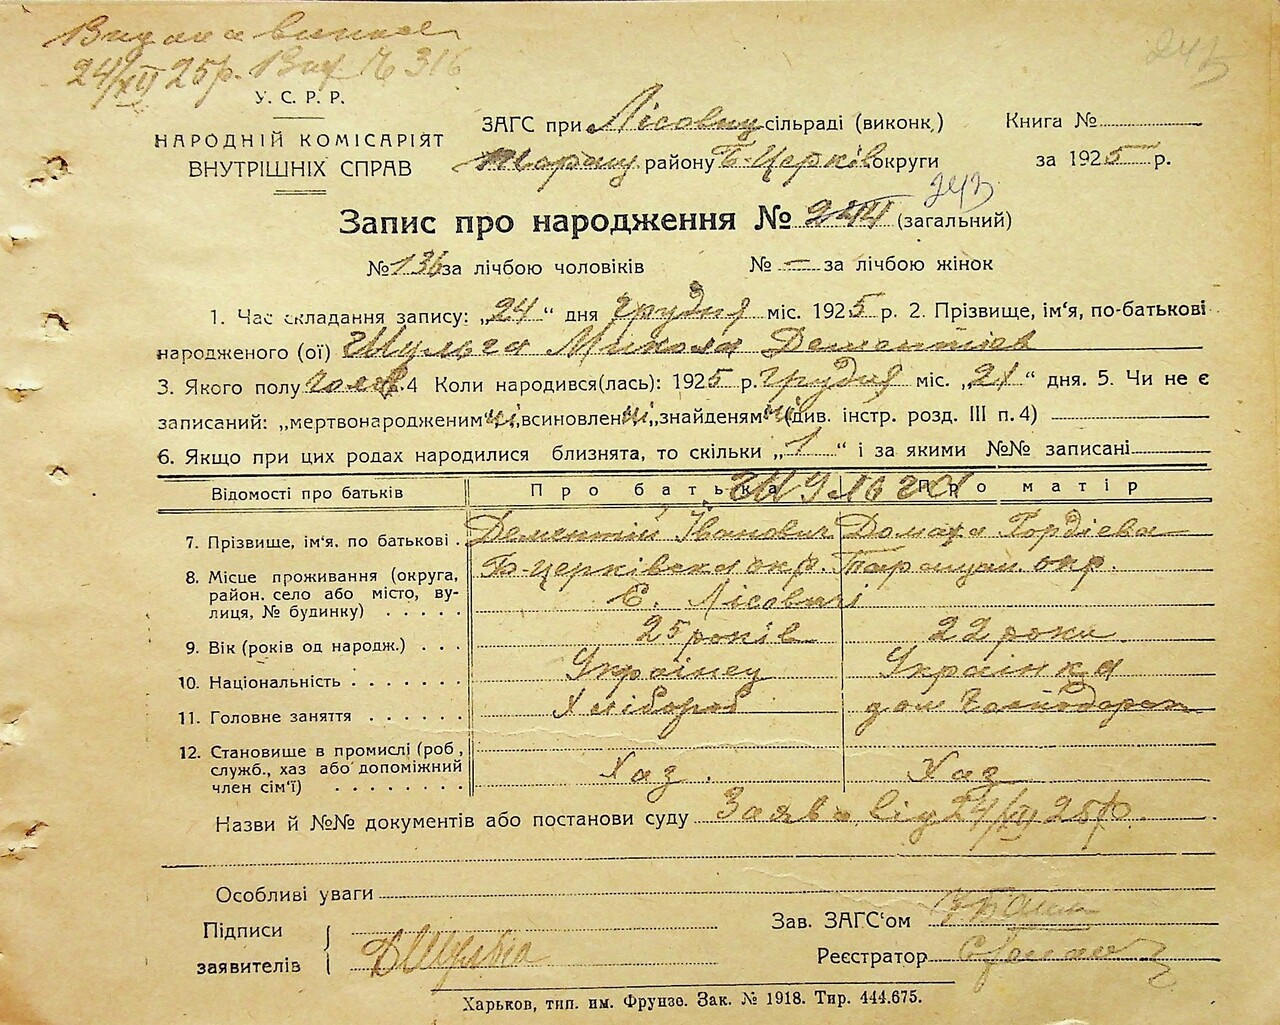 Видана виписка
24/XII 25р. Вих № 316
243
У. С. Р. Р.
НАРОДНІЙ КОМІСАРІЯТ
ВНУТРІШНІХ СПРАВ
ЗАГС при Лісовиц сільраді (виконк.)
Таращ району Б-Церків округи
Книга №
за 1925 р.
243
Запис про народження № 244 (загальний)
№ 136 за лічбою чоловіків № — за лічбою жінок
1. Час складання запису: „24“ дня грудня міс. 1925 р. 2. Прізвище, ім‘я, по-батькові
народженого (ої) Шульга Микола Дементіев
3. Якого полу чолов. 4 Коли народився(лась): 1925 р. грудня міс. „21“ дня. 5. Чи не є
записаний: „мертвонародженим“, „всиновлен“, „знайденям“ (див. інстр. розд. III п. 4)
6. Якщо при цих родах народилися близнята, то скільки „1“ і за якими №№ записані
Відомості про батьків Про батька Про матір
Шульга
7. Прізвище, ім‘я. по батькові . Дементій Іванович Домаха Гордієва
8. Місце проживання (округа, Б-церківська окр. Таращан. окр.
район. село або місто, ву-
лиця, № будинку) . . . . . С. Лісовичі
9. Вік (років од народж.) . . . 25 років 22 роки
10. Національність . . . . . . . Українец Українка
11. Головне заняття . . . . . . Хлібороб дом господарка
12. Становище в промислі (роб.,
служб., хаз або допоміжний
член сім‘ї) . . . . . . . . Хаз. Хаз
Назви й №№ документів або постанови суду Заява від 24/XII 25р.
Особливі уваги
Підписи
заявителів
Д Шульга
Зав. ЗАГС‘ом
Реєстратор
Харьков, тип. им. Фрунзе. Зак. № 1918. Тир. 444.675.